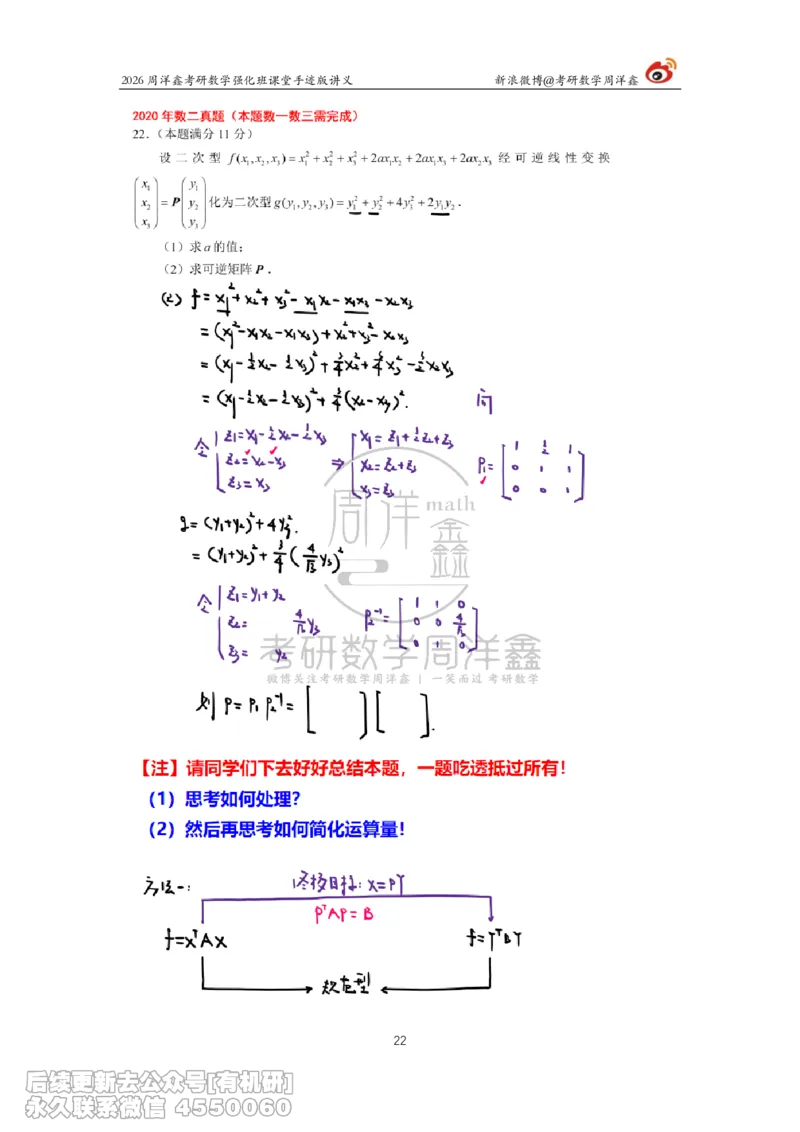 2026 周洋鑫考研数学强化班课堂手迹版讲义 新浪微博@考研数学周洋鑫
2020 年数二真题（本题数一数三需完成）
22.（本题满分 11 分）
设二次型 f(x₁,x₂,x₃)=x₁²+x₂²+x₃²+2ax₁x₂+2ax₁x₃+2ax₂x₃ 经可逆线性变换
(x₁ x₂ x₃) = P (y₁ y₂ y₃) 化为二次型 g(y₁,y₂,y₃)=y₁²+y₂²+4y₃²+2y₁y₂.
（1）求a的值;
（2）求可逆矩阵 P.
(2) f=x₁²+x₂²+x₃²-x₁x₂-x₁x₃-x₂x₃
=(x₁²-x₁x₂-x₁x₃)+x₂²+x₃²-x₂x₃
=(x₁-½x₂-½x₃)²+¾x₂²+¾x₃²-3/2x₂x₃
=(x₁-½x₂-½x₃)²+¾(x₂-x₃)².
令 { z₁=x₁-½x₂-½x₃
z₂=x₂-x₃
z₃=x₃
⇒ { x₁=z₁+½z₂+z₃
x₂=z₂+z₃
x₃=z₃
P₁= [ 1 ½ 1
0 1 1
0 0 1 ]
g=(y₁+y₂)²+4y₃².
=(y₁+y₂)²+¾(4/√3 y₃)²
令 { z₁=y₁+y₂
z₂= 4/√3 y₃
z₃= y₂
P₂⁻¹= [ 1 1 0
0 0 4/√3
0 1 0 ]
周洋鑫 math
考研数学周洋鑫
微博关注考研数学周洋鑫 | 一笑而过 考研数学
则 P=P₁P₂⁻¹= [ ] [ ].
【注】请同学们下去好好总结本题，一题吃透抵过所有！
（1）思考如何处理？
（2）然后再思考如何简化运算量！
方法一: 终极目标: X=PY
PᵀAP=B
f=XᵀAX f=YᵀBY
规范型
22
后续更新去公众号[有机研]
永久联系微信 4550060